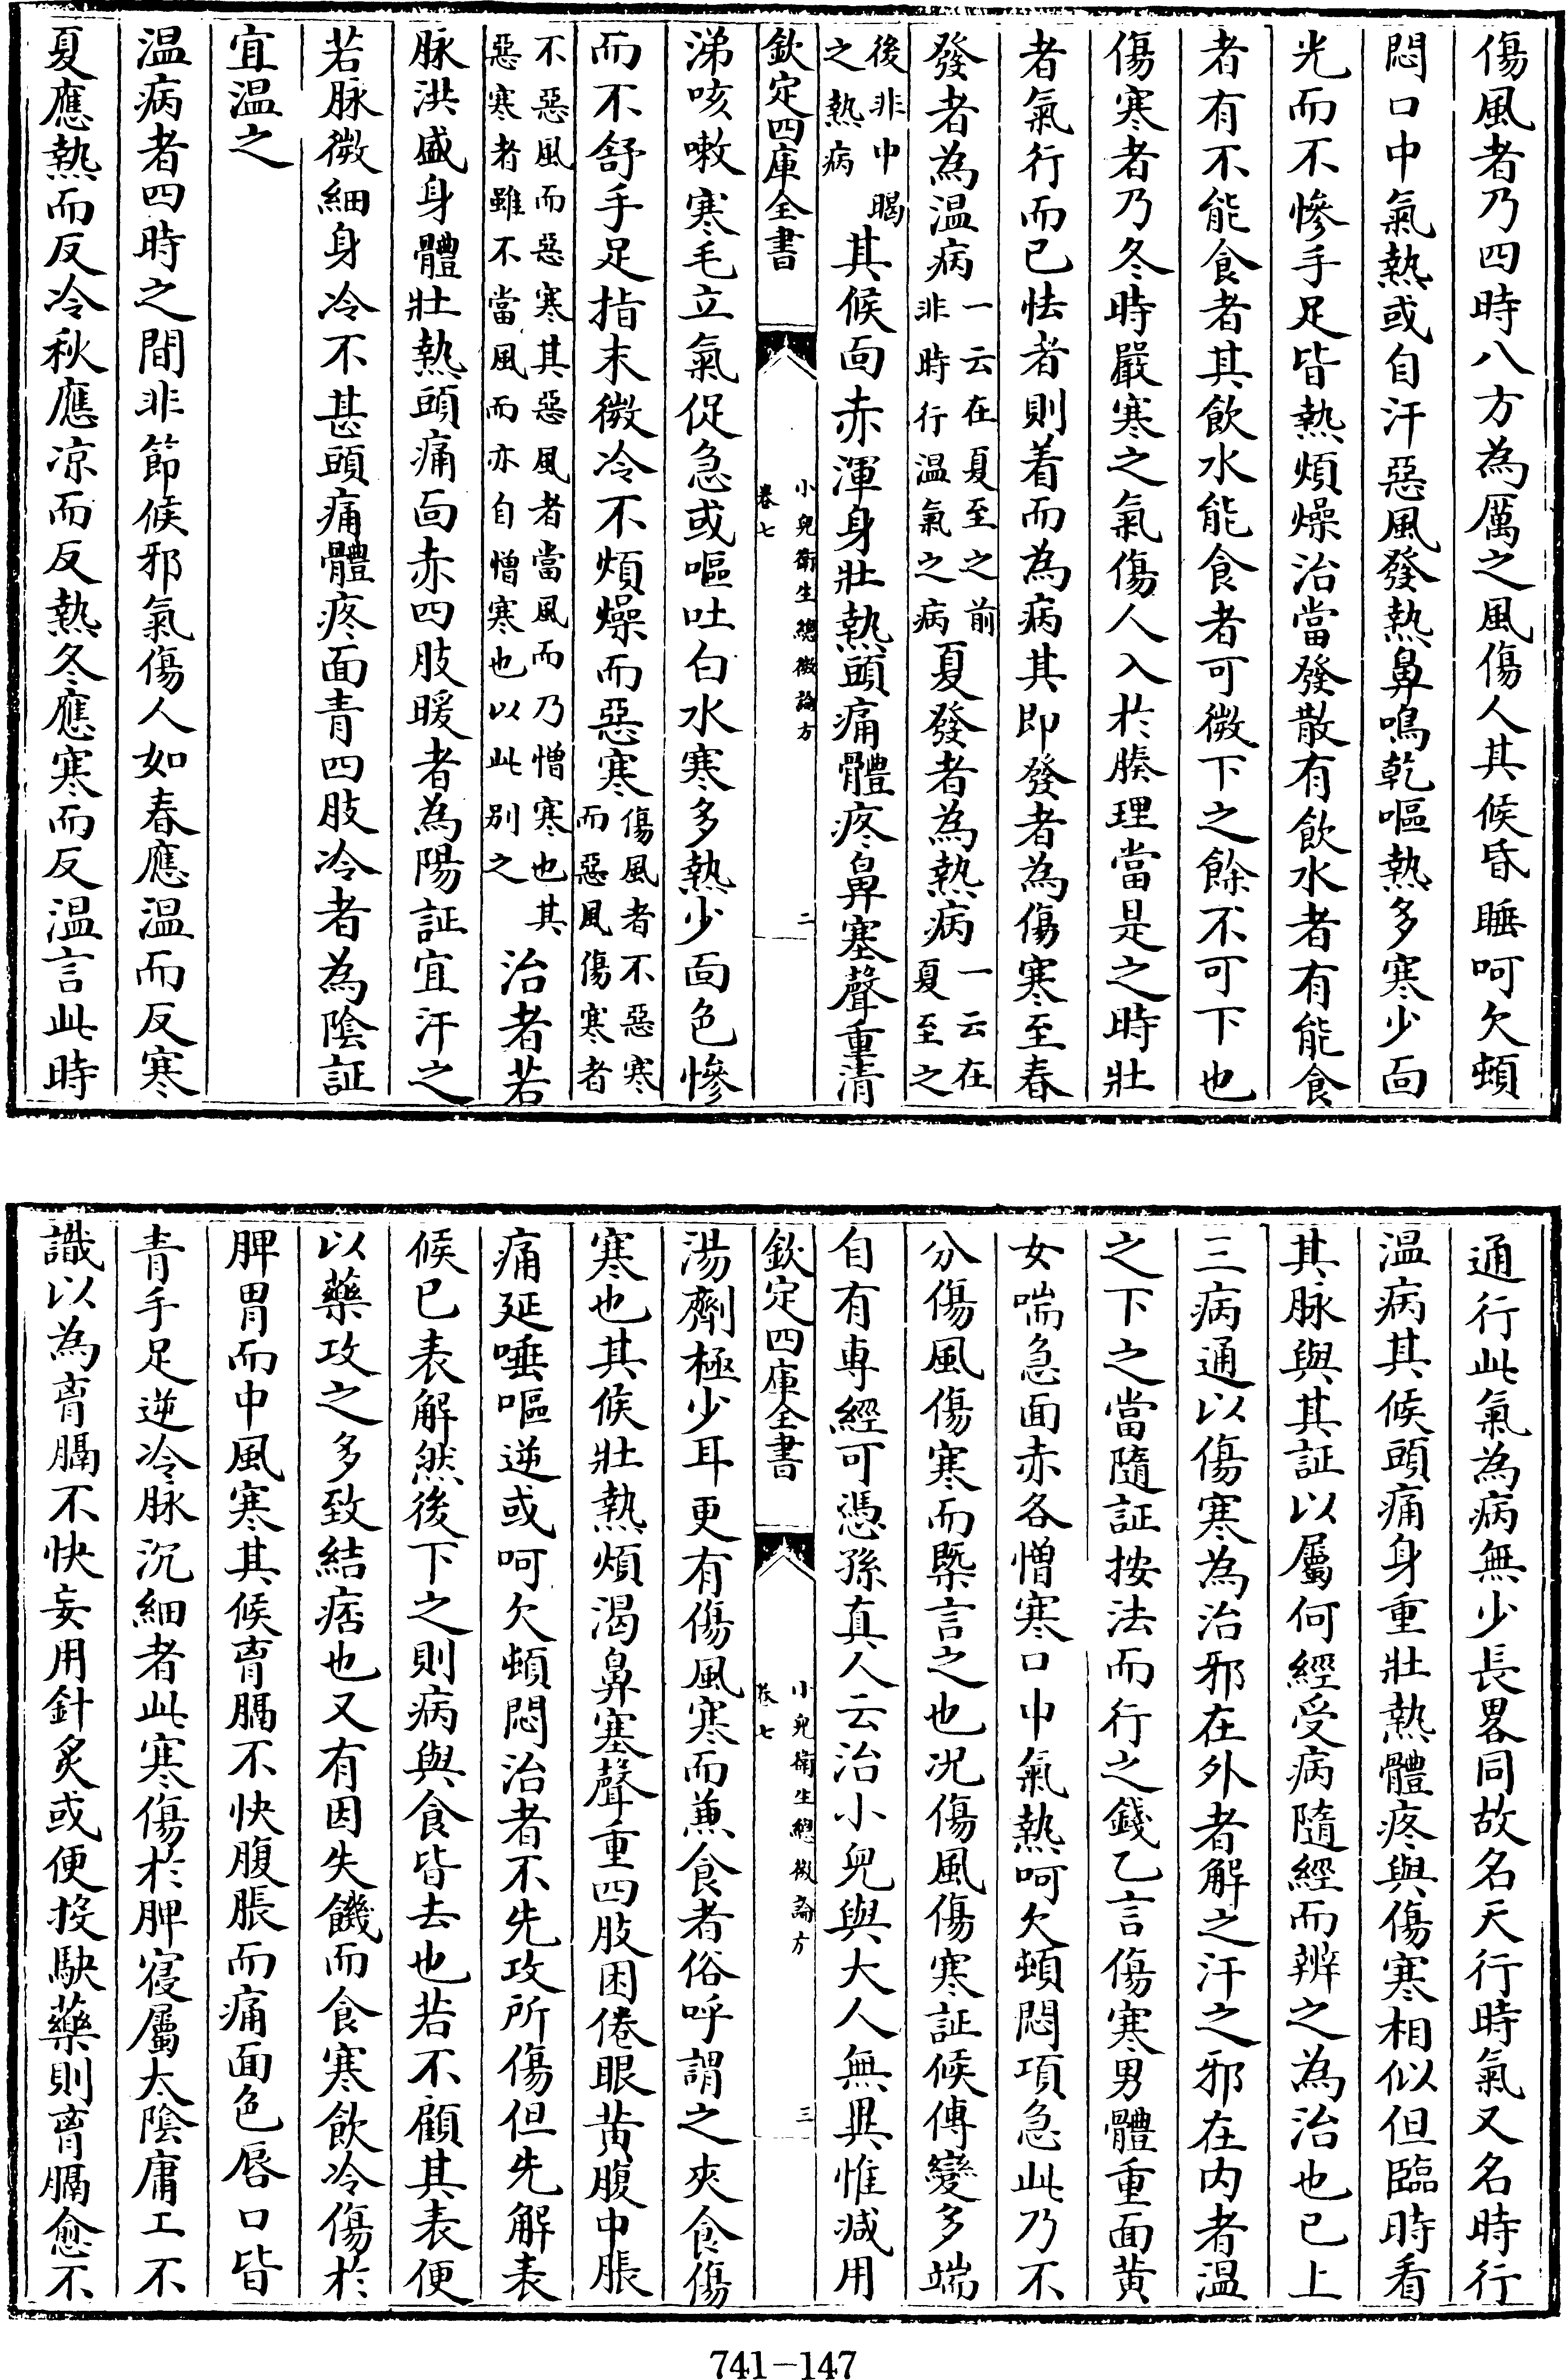 傷風者乃四時八方為厲之風傷人其候昏睡呵欠頓
悶口中氣熱或自汗惡風發熱鼻鳴乾嘔熱多寒少面
光而不慘手足皆熱煩燥治當發散有飲水者有能食
者有不能食者其飲水能食者可微下之餘不可下也
傷寒者乃冬時嚴寒之氣傷人入於腠理當是之時壯
者氣行而已怯者則着而為病其即發者為傷寒至春
發者為温病一云在夏至之前非時行温氣之病夏發者為熱病一云在夏至之
後非中暍之熱病其候面赤渾身壯熱頭痛體疼鼻塞聲重清
欽定四庫全書
小兒衛生總微論方
卷七
二
涕咳嗽寒毛立氣促急或嘔吐白水寒多熱少面色慘
而不舒手足指末微冷不煩燥而惡寒傷風者不惡寒而惡風傷寒者
不惡風而惡寒其惡風者當風而乃憎寒也其惡寒者雖不當風而亦自憎寒也以此別之治者若
脉洪盛身體壯熱頭痛面赤四肢暖者為陽証宜汗之
若脉微細身冷不甚頭痛體疼面青四肢冷者為陰証
宜温之
温病者四時之間非節候邪氣傷人如春應温而反寒
夏應熱而反冷秋應凉而反熱冬應寒而反温言此時
通行此氣為病無少長畧同故名天行時氣又名時行
温病其候頭痛身重壯熱體疼與傷寒相似但臨時看
其脉與其証以屬何經受病隨經而辨之為治也已上
三病通以傷寒為治邪在外者解之汗之邪在内者温
之下之當隨証按法而行之錢乙言傷寒男體重面黄
女喘急面赤各憎寒口中氣熱呵欠頓悶項急此乃不
分傷風傷寒而槩言之也况傷風傷寒証候傳變多端
自有專經可憑孫真人云治小兒與大人無異惟减用
欽定四庫全書
小兒衛生總微論方
卷七
三
湯劑極少耳更有傷風寒而兼食者俗呼謂之夾食傷
寒也其候壯熱煩渴鼻塞聲重四肢困倦眼黄腹中脹
痛延唾嘔逆或呵欠頓悶治者不先攻所傷但先解表
候已表解然後下之則病與食皆去也若不顧其表便
以藥攻之多致結痞也又有因失饑而食寒飲冷傷於
脾胃而中風寒其候胷膈不快腹脹而痛面色唇口皆
青手足逆冷脉沉細者此寒傷於脾寢屬太陰庸工不
識以為胷膈不快妄用針炙或便投駃藥則胷膈愈不
741-147